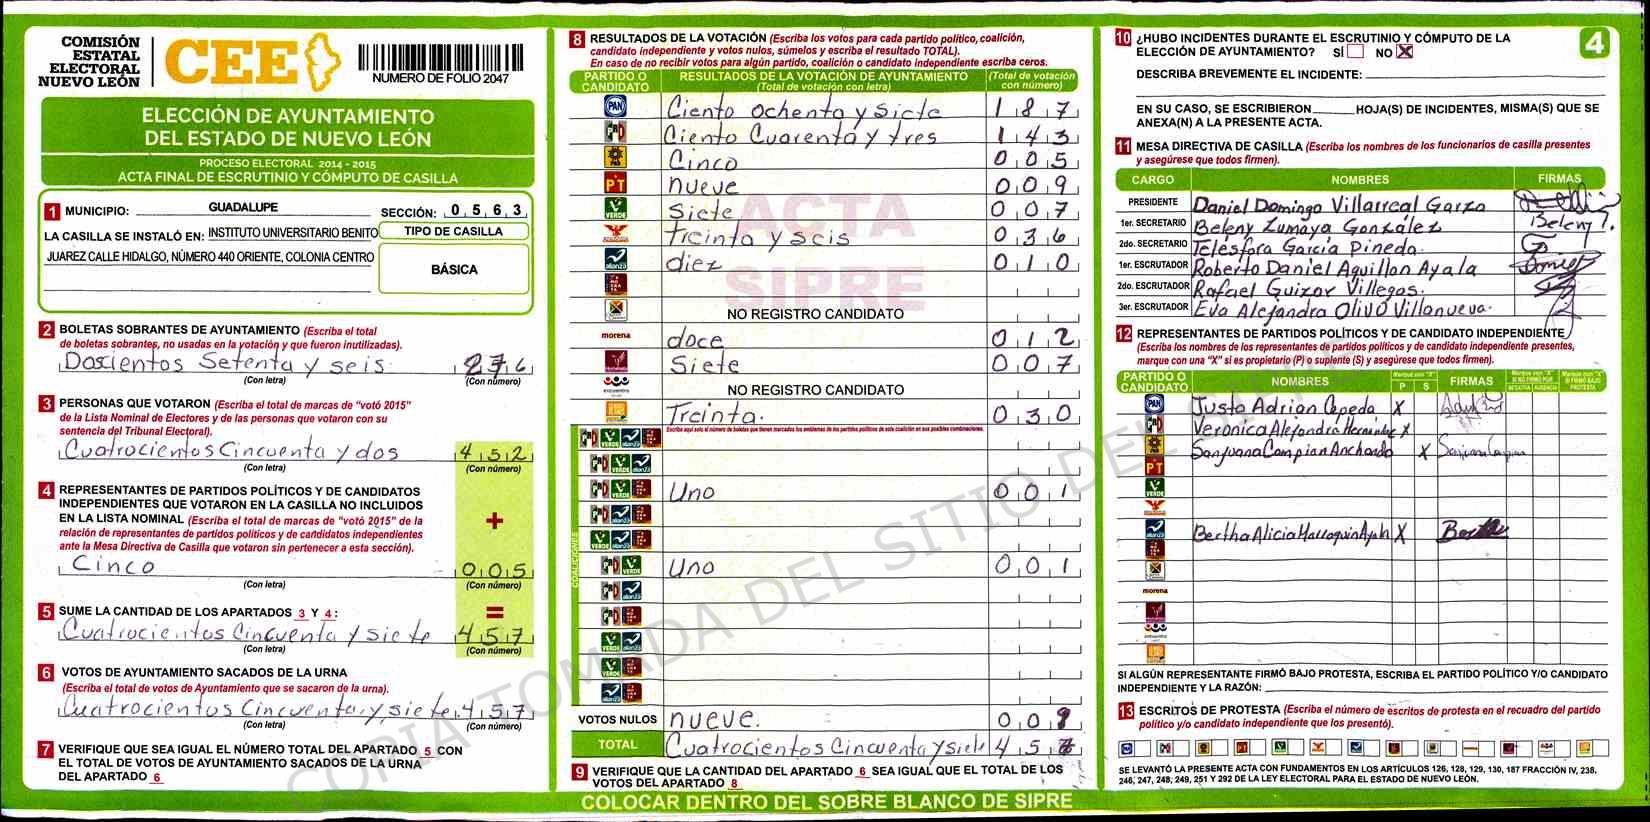 COMISIÓN
ESTATAL
ELECTORAL
NUEVO LEÓN
CEE
NUMERO DE FOLIO 2047
ELECCIÓN DE AYUNTAMIENTO
DEL ESTADO DE NUEVO LEÓN
PROCESO ELECTORAL 2014 - 2015
ACTA FINAL DE ESCRUTINIO Y CÓMPUTO DE CASILLA
1 MUNICIPIO: GUADALUPE SECCIÓN: 0 5 6 3
LA CASILLA SE INSTALÓ EN: INSTITUTO UNIVERSITARIO BENITO
JUAREZ CALLE HIDALGO, NÚMERO 440 ORIENTE, COLONIA CENTRO
TIPO DE CASILLA
BÁSICA
2 BOLETAS SOBRANTES DE AYUNTAMIENTO (Escriba el total
de boletas sobrantes, no usadas en la votación y que fueron inutilizadas).
Doscientos Setenta y seis 276
(Con letra) (Con número)
3 PERSONAS QUE VOTARON (Escriba el total de marcas de "votó 2015"
de la Lista Nominal de Electores y de las personas que votaron con su
sentencia del Tribunal Electoral).
Cuatrocientos Cincuenta y dos 4 5 2
(Con letra) (Con número)
4 REPRESENTANTES DE PARTIDOS POLÍTICOS Y DE CANDIDATOS
INDEPENDIENTES QUE VOTARON EN LA CASILLA NO INCLUIDOS
EN LA LISTA NOMINAL (Escriba el total de marcas de "votó 2015" de la
relación de representantes de partidos políticos y de candidatos independientes
ante la Mesa Directiva de Casilla que votaron sin pertenecer a esta sección).
+
Cinco 0 0 5
(Con letra) (Con número)
5 SUME LA CANTIDAD DE LOS APARTADOS 3 Y 4:
=
Cuatrocientos Cincuenta y siete 4 5 7
(Con letra) (Con número)
6 VOTOS DE AYUNTAMIENTO SACADOS DE LA URNA
(Escriba el total de votos de Ayuntamiento que se sacaron de la urna).
Cuatrocientos Cincuenta y siete 4 5 7
(Con letra) (Con número)
7 VERIFIQUE QUE SEA IGUAL EL NÚMERO TOTAL DEL APARTADO 5 CON
EL TOTAL DE VOTOS DE AYUNTAMIENTO SACADOS DE LA URNA
DEL APARTADO 6
8 RESULTADOS DE LA VOTACIÓN (Escriba los votos para cada partido político, coalición,
candidato independiente y votos nulos, súmelos y escriba el resultado TOTAL).
En caso de no recibir votos para algún partido, coalición o candidato independiente escriba ceros.
PARTIDO O CANDIDATO RESULTADOS DE LA VOTACIÓN DE AYUNTAMIENTO (Total de votación con letra) (Total de votación con número)
PAN Ciento Ochenta y Siete 1 8 7
PRD Ciento Cuarenta y tres 1 4 3
PRD Cinco 0 0 5
PT nueve 0 0 9
VERDE Siete 0 0 7
treinta y seis 0 3 6
alianza diez 0 1 0
ACTA
SIPRE
NO REGISTRO CANDIDATO
morena doce 0 1 2
Siete 0 0 7
encuentro NO REGISTRO CANDIDATO
Treinta. 0 3 0
Escriba aquí solo el número de boletas que tienen marcados los emblemas de los partidos políticos de esta coalición en sus posibles combinaciones.
COALICIONES
Uno 0 0 1
Uno 0 0 1
VOTOS NULOS nueve. 0 0 9
TOTAL Cuatrocientos Cincuenta y siete 4 5 7
9 VERIFIQUE QUE LA CANTIDAD DEL APARTADO 6 SEA IGUAL QUE EL TOTAL DE LOS
VOTOS DEL APARTADO 8
COLOCAR DENTRO DEL SOBRE BLANCO DE SIPRE
10 ¿HUBO INCIDENTES DURANTE EL ESCRUTINIO Y CÓMPUTO DE LA
ELECCIÓN DE AYUNTAMIENTO? SÍ NO X
4
DESCRIBA BREVEMENTE EL INCIDENTE:
EN SU CASO, SE ESCRIBIERON HOJA(S) DE INCIDENTES, MISMA(S) QUE SE
ANEXA(N) A LA PRESENTE ACTA.
11 MESA DIRECTIVA DE CASILLA (Escriba los nombres de los funcionarios de casilla presentes
y asegúrese que todos firmen).
CARGO NOMBRES FIRMAS
PRESIDENTE Daniel Domingo Villarreal Garza
1er. SECRETARIO Beleny Zumaya González Beleny Z.
2do. SECRETARIO Telésfora García Pineda.
1er. ESCRUTADOR Roberto Daniel Aguillon Ayala
2do. ESCRUTADOR Rafael Guizar Villegas.
3er. ESCRUTADOR Eva Alejandra Olivo Villanueva.
12 REPRESENTANTES DE PARTIDOS POLÍTICOS Y DE CANDIDATO INDEPENDIENTE
(Escriba los nombres de los representantes de partidos políticos y de candidato independiente presentes,
marque con una "X" si es propietario (P) o suplente (S) y asegúrese que todos firmen).
PARTIDO O CANDIDATO NOMBRES Marque con "X" P S FIRMAS Marque con "X" SI NO FIRMÓ POR NEGATIVA AUSENCIA Marque con "X" SI FIRMÓ BAJO PROTESTA
PAN Justo Adrian Cepeda X
Veronica Alejandra Hernández X
Sanjuana Campian Anchondo X
PT
VERDE
Bertha Alicia Malloquin Ayala X Bertha
morena
SI ALGÚN REPRESENTANTE FIRMÓ BAJO PROTESTA, ESCRIBA EL PARTIDO POLÍTICO Y/O CANDIDATO
INDEPENDIENTE Y LA RAZÓN:
13 ESCRITOS DE PROTESTA (Escriba el número de escritos de protesta en el recuadro del partido
político y/o candidato independiente que los presentó).
SE LEVANTÓ LA PRESENTE ACTA CON FUNDAMENTOS EN LOS ARTÍCULOS 126, 128, 129, 130, 187 FRACCIÓN IV, 238,
246, 247, 248, 249, 251 Y 292 DE LA LEY ELECTORAL PARA EL ESTADO DE NUEVO LEÓN.
COPIA TOMADA DEL SITIO DEL SIPRE